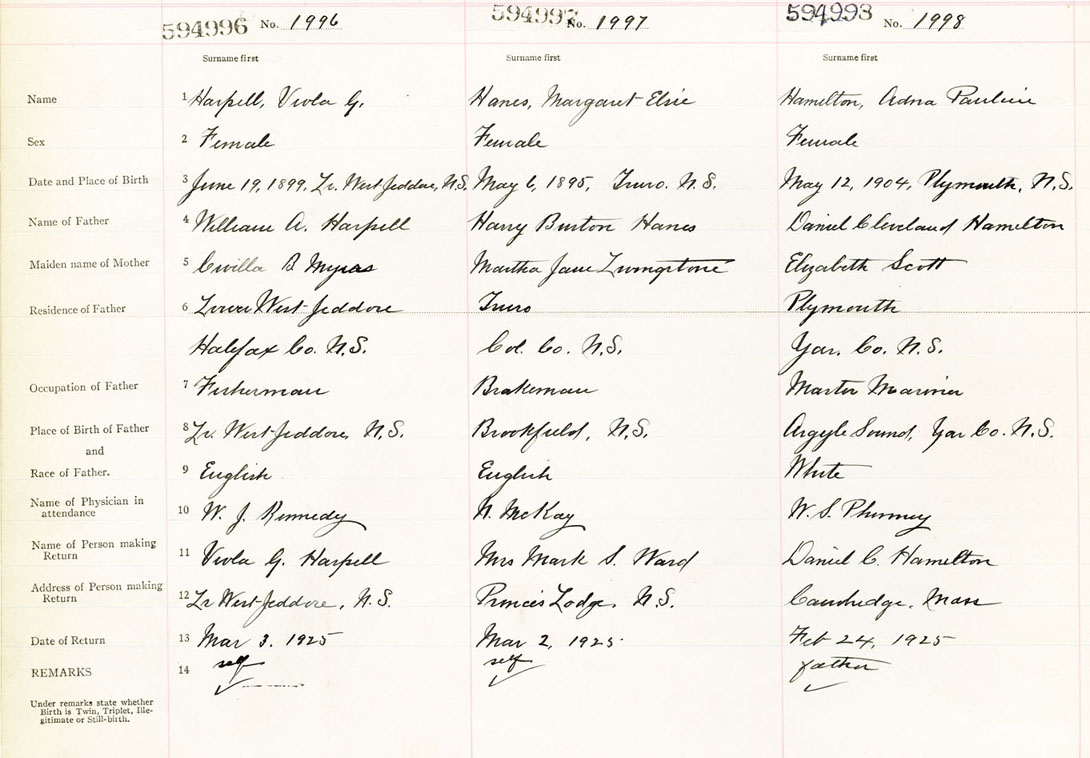 594996 No. 1996 594997 No. 1997 594998 No. 1998
Surname first Surname first Surname first
Name 1 Harpell, Viola G. Hanes, Margaret Elsie Hamilton, Adna Pauline
Sex 2 Female Female Female
Date and Place of Birth 3 June 19, 1899, Lr. West Jeddore, N.S. May 6, 1895, Truro. N.S. May 12, 1904, Plymouth, N.S.
Name of Father 4 William A. Harpell Harry Burton Hanes Daniel Cleveland Hamilton
Maiden name of Mother 5 Civilla B Myras Martha Jane Livingstone Elizabeth Scott
Residence of Father 6 Lower West Jeddore Truro Plymouth
Halifax Co. N.S. Col. Co. N.S. Yar. Co. N.S.
Occupation of Father 7 Fisherman Brakeman Master Mariner
Place of Birth of Father 8 Lr. West Jeddore, N.S. Brookfield, N.S. Argyle Sound, Yar Co. N.S.
and
Race of Father. 9 English English White
Name of Physician in
attendance 10 W. J. Kennedy N. McKay W. S. Phinney
Name of Person making
Return 11 Viola G. Harpell Mrs Mark S. Ward Daniel C. Hamilton
Address of Person making
Return 12 Lr West Jeddore, N.S. Princes Lodge, N.S. Cambridge, Mass
Date of Return 13 Mar 3. 1925 Mar 2, 1925 Feb 24, 1925
REMARKS 14 self self father
Under remarks state whether
Birth is Twin, Triplet, Ille-
gitimate or Still-birth.